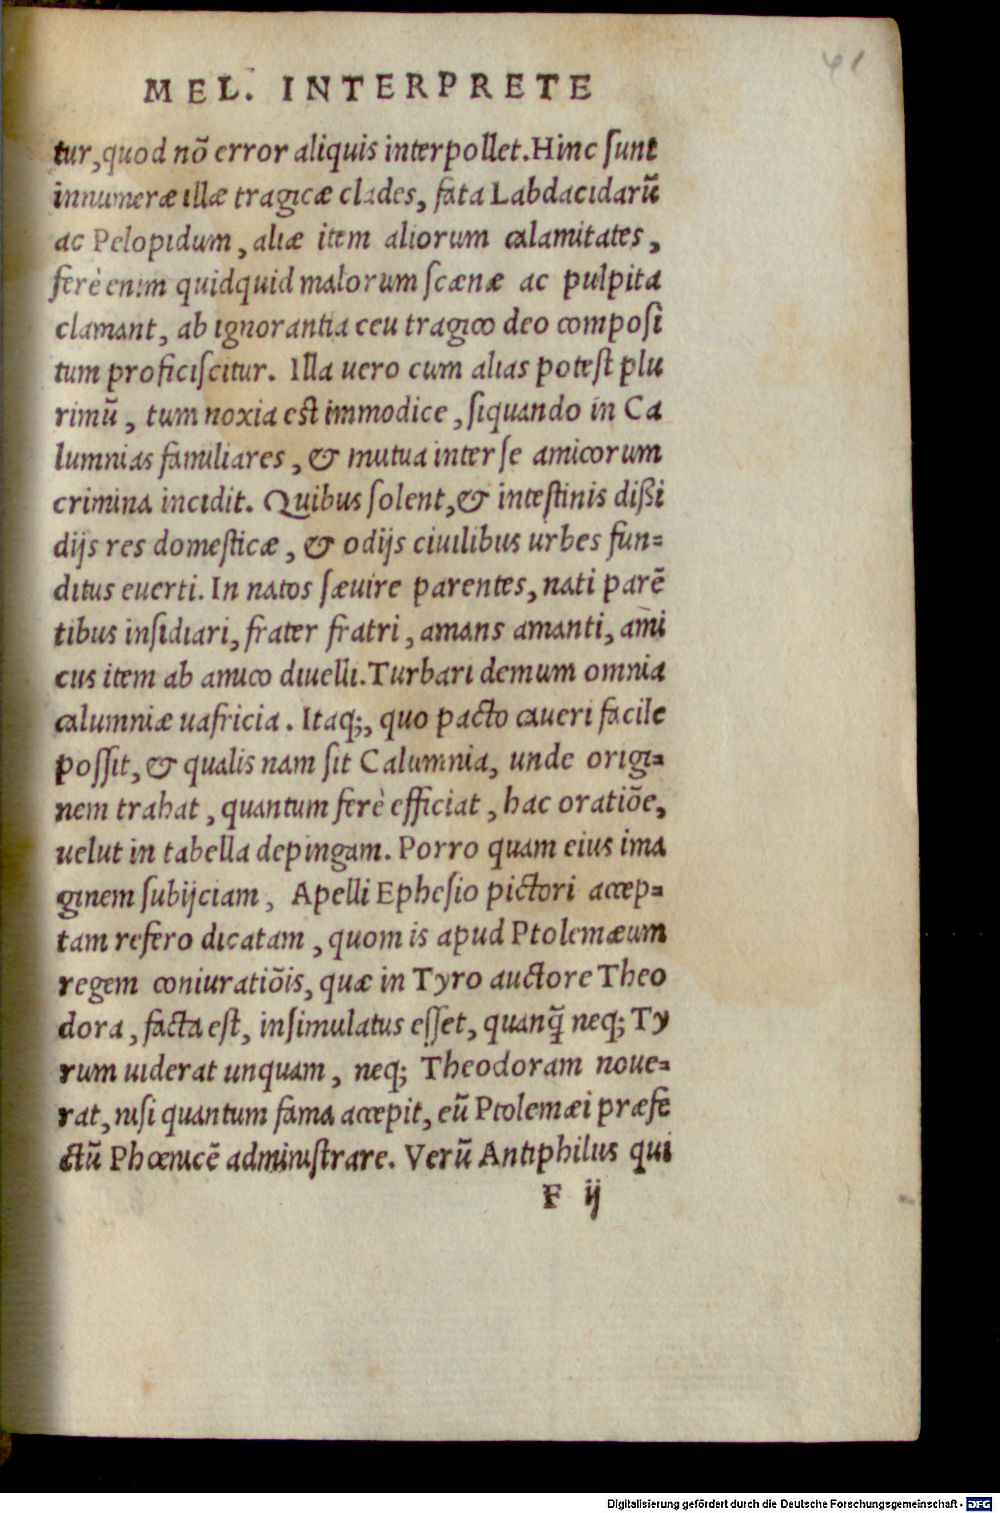 41
MEL. INTERPRETE
tur, quod nõ error aliquis interpollet. Hinc ſunt
innumeræ illæ tragicæ clades, fata Labdacidarũ
ac Pelopidum, aliæ item aliorum calamitates,
ferè enim quidquid malorum ſcænæ ac pulpita
clamant, ab ignorantia ceu tragico deo compoſi
tum proficiſcitur. Illa uero cum alias poteſt plu
rimũ, tum noxia eſt immodice, ſiquando in Ca
lumnias familiares, & mutua inter ſe amicorum
crimina incidit. Quibus ſolent, & inteſtinis dißi
dijs res domeſticæ, & odijs ciuilibus urbes fun=
ditus euerti. In natos ſæuire parentes, nati parẽ
tibus inſidiari, frater fratri, amans amanti, ami
cus item ab amico diuelli. Turbari demum omnia
calumniæ uafricia. Itaq;, quo pacto caueri facile
poſſit, & qualis nam ſit Calumnia, unde origi=
nem trahat, quantum ferè efficiat, hac oratiõe,
uelut in tabella depingam. Porro quam eius ima
ginem ſubijciam, Apelli Epheſio pictori accep=
tam refero dicatam, quom is apud Ptolemæum
regem coniuratiõis, quæ in Tyro auctore Theo
dora, facta eſt, inſimulatus eſſet, quanq̃ neq; Ty
rum uiderat unquam, neq; Theodoram noue=
rat, niſi quantum fama accepit, eũ Ptolemæi præfe
ctũ Phœnicẽ adminiſtrare. Verũ Antiphilus qui
F ij
Digitalisierung gefördert durch die Deutsche Forschungsgemeinschaft - DFG